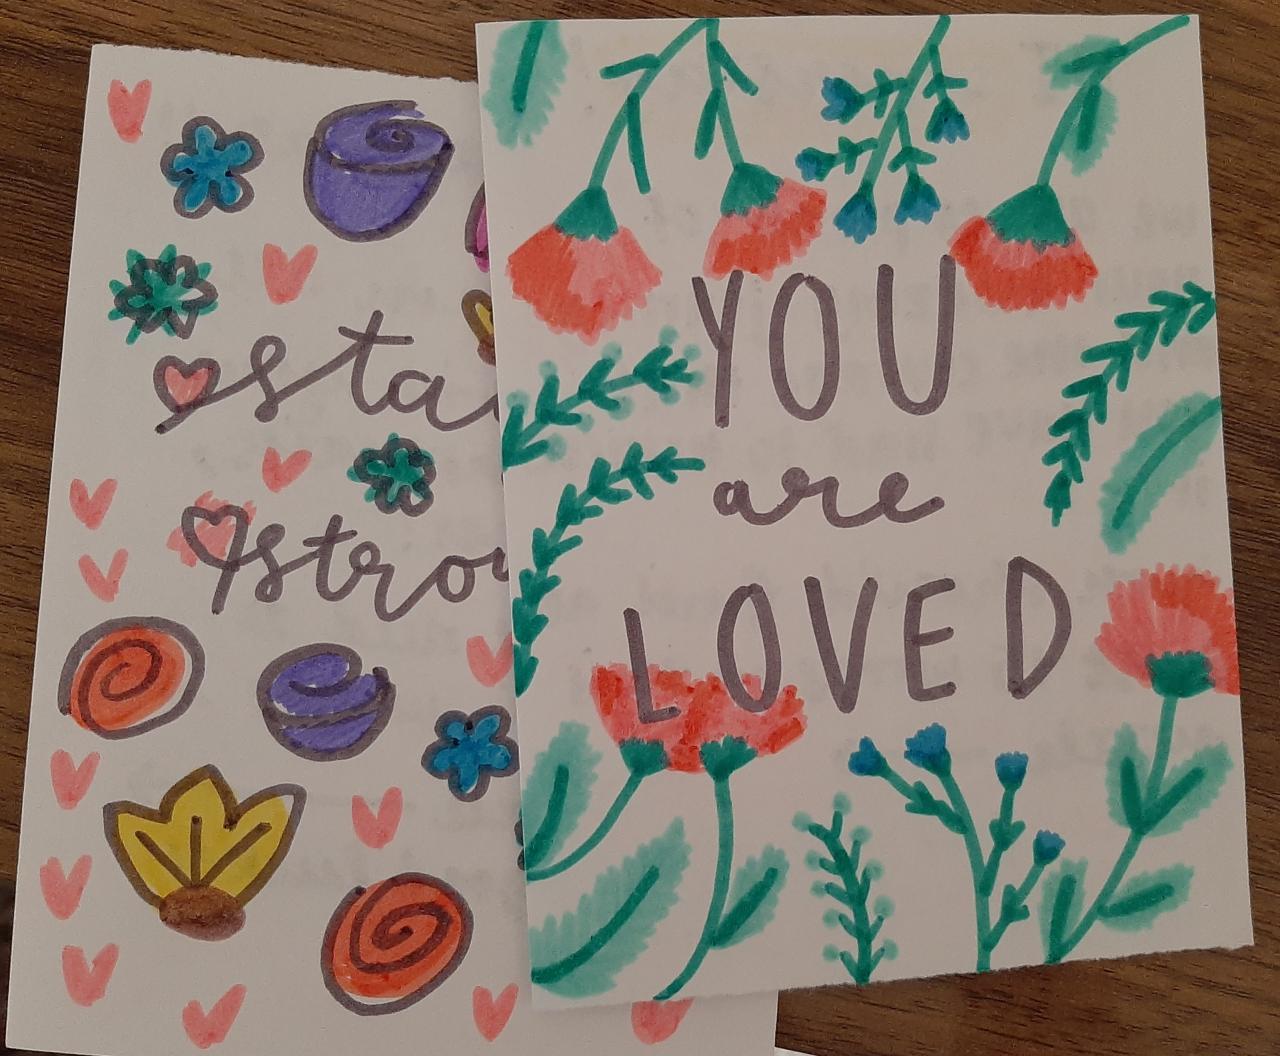 sta
stro
YOU
are
LOVED